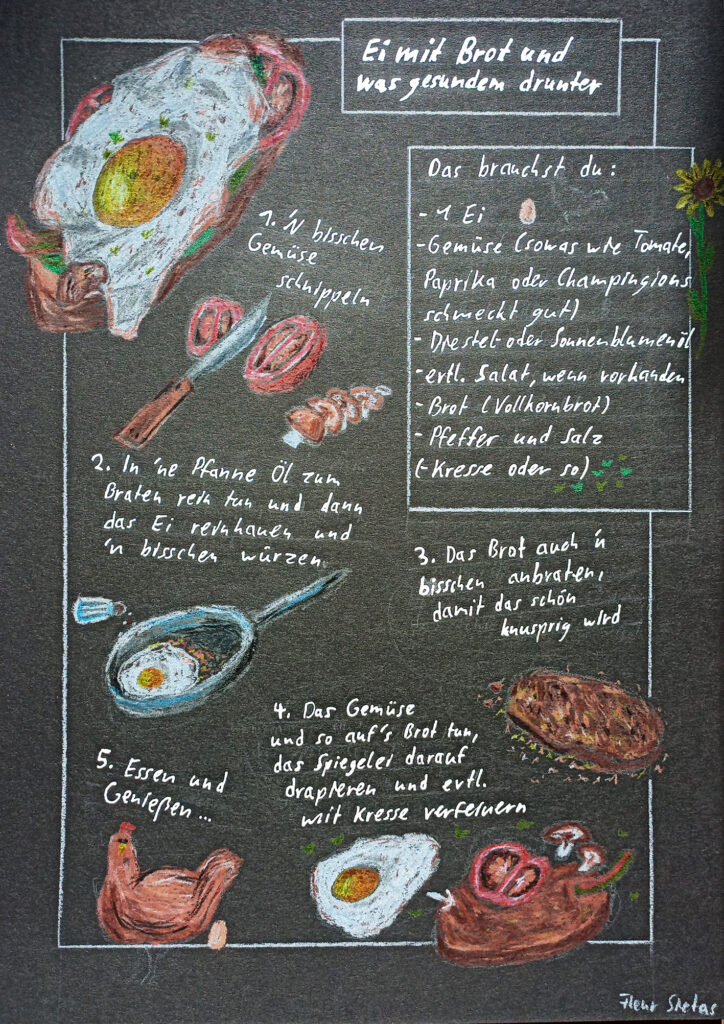 Ei mit Brot und
was gesundem drunter
Das brauchst du:
- 1 Ei
- Gemüse (sowas wie Tomate,
Paprika oder Champingions
schmeckt gut)
- Diestel- oder Sonnenblumenöl
- evtl. Salat, wenn vorhanden
- Brot (Vollkornbrot)
- Pfeffer und Salz
(- Kresse oder so)
1. 'N bisschen
Gemüse
schnippeln
2. In 'ne Pfanne Öl zum
Braten rein tun und dann
das Ei reinhauen und
'n bisschen würzen
3. Das Brot auch 'n
bisschen anbraten,
damit das schön
knusprig wird
4. Das Gemüse
und so auf's Brot tun,
das Spiegelei darauf
drapieren und evtl.
mit Kresse verfeinern
5. Essen und
Genießen...
Fleur